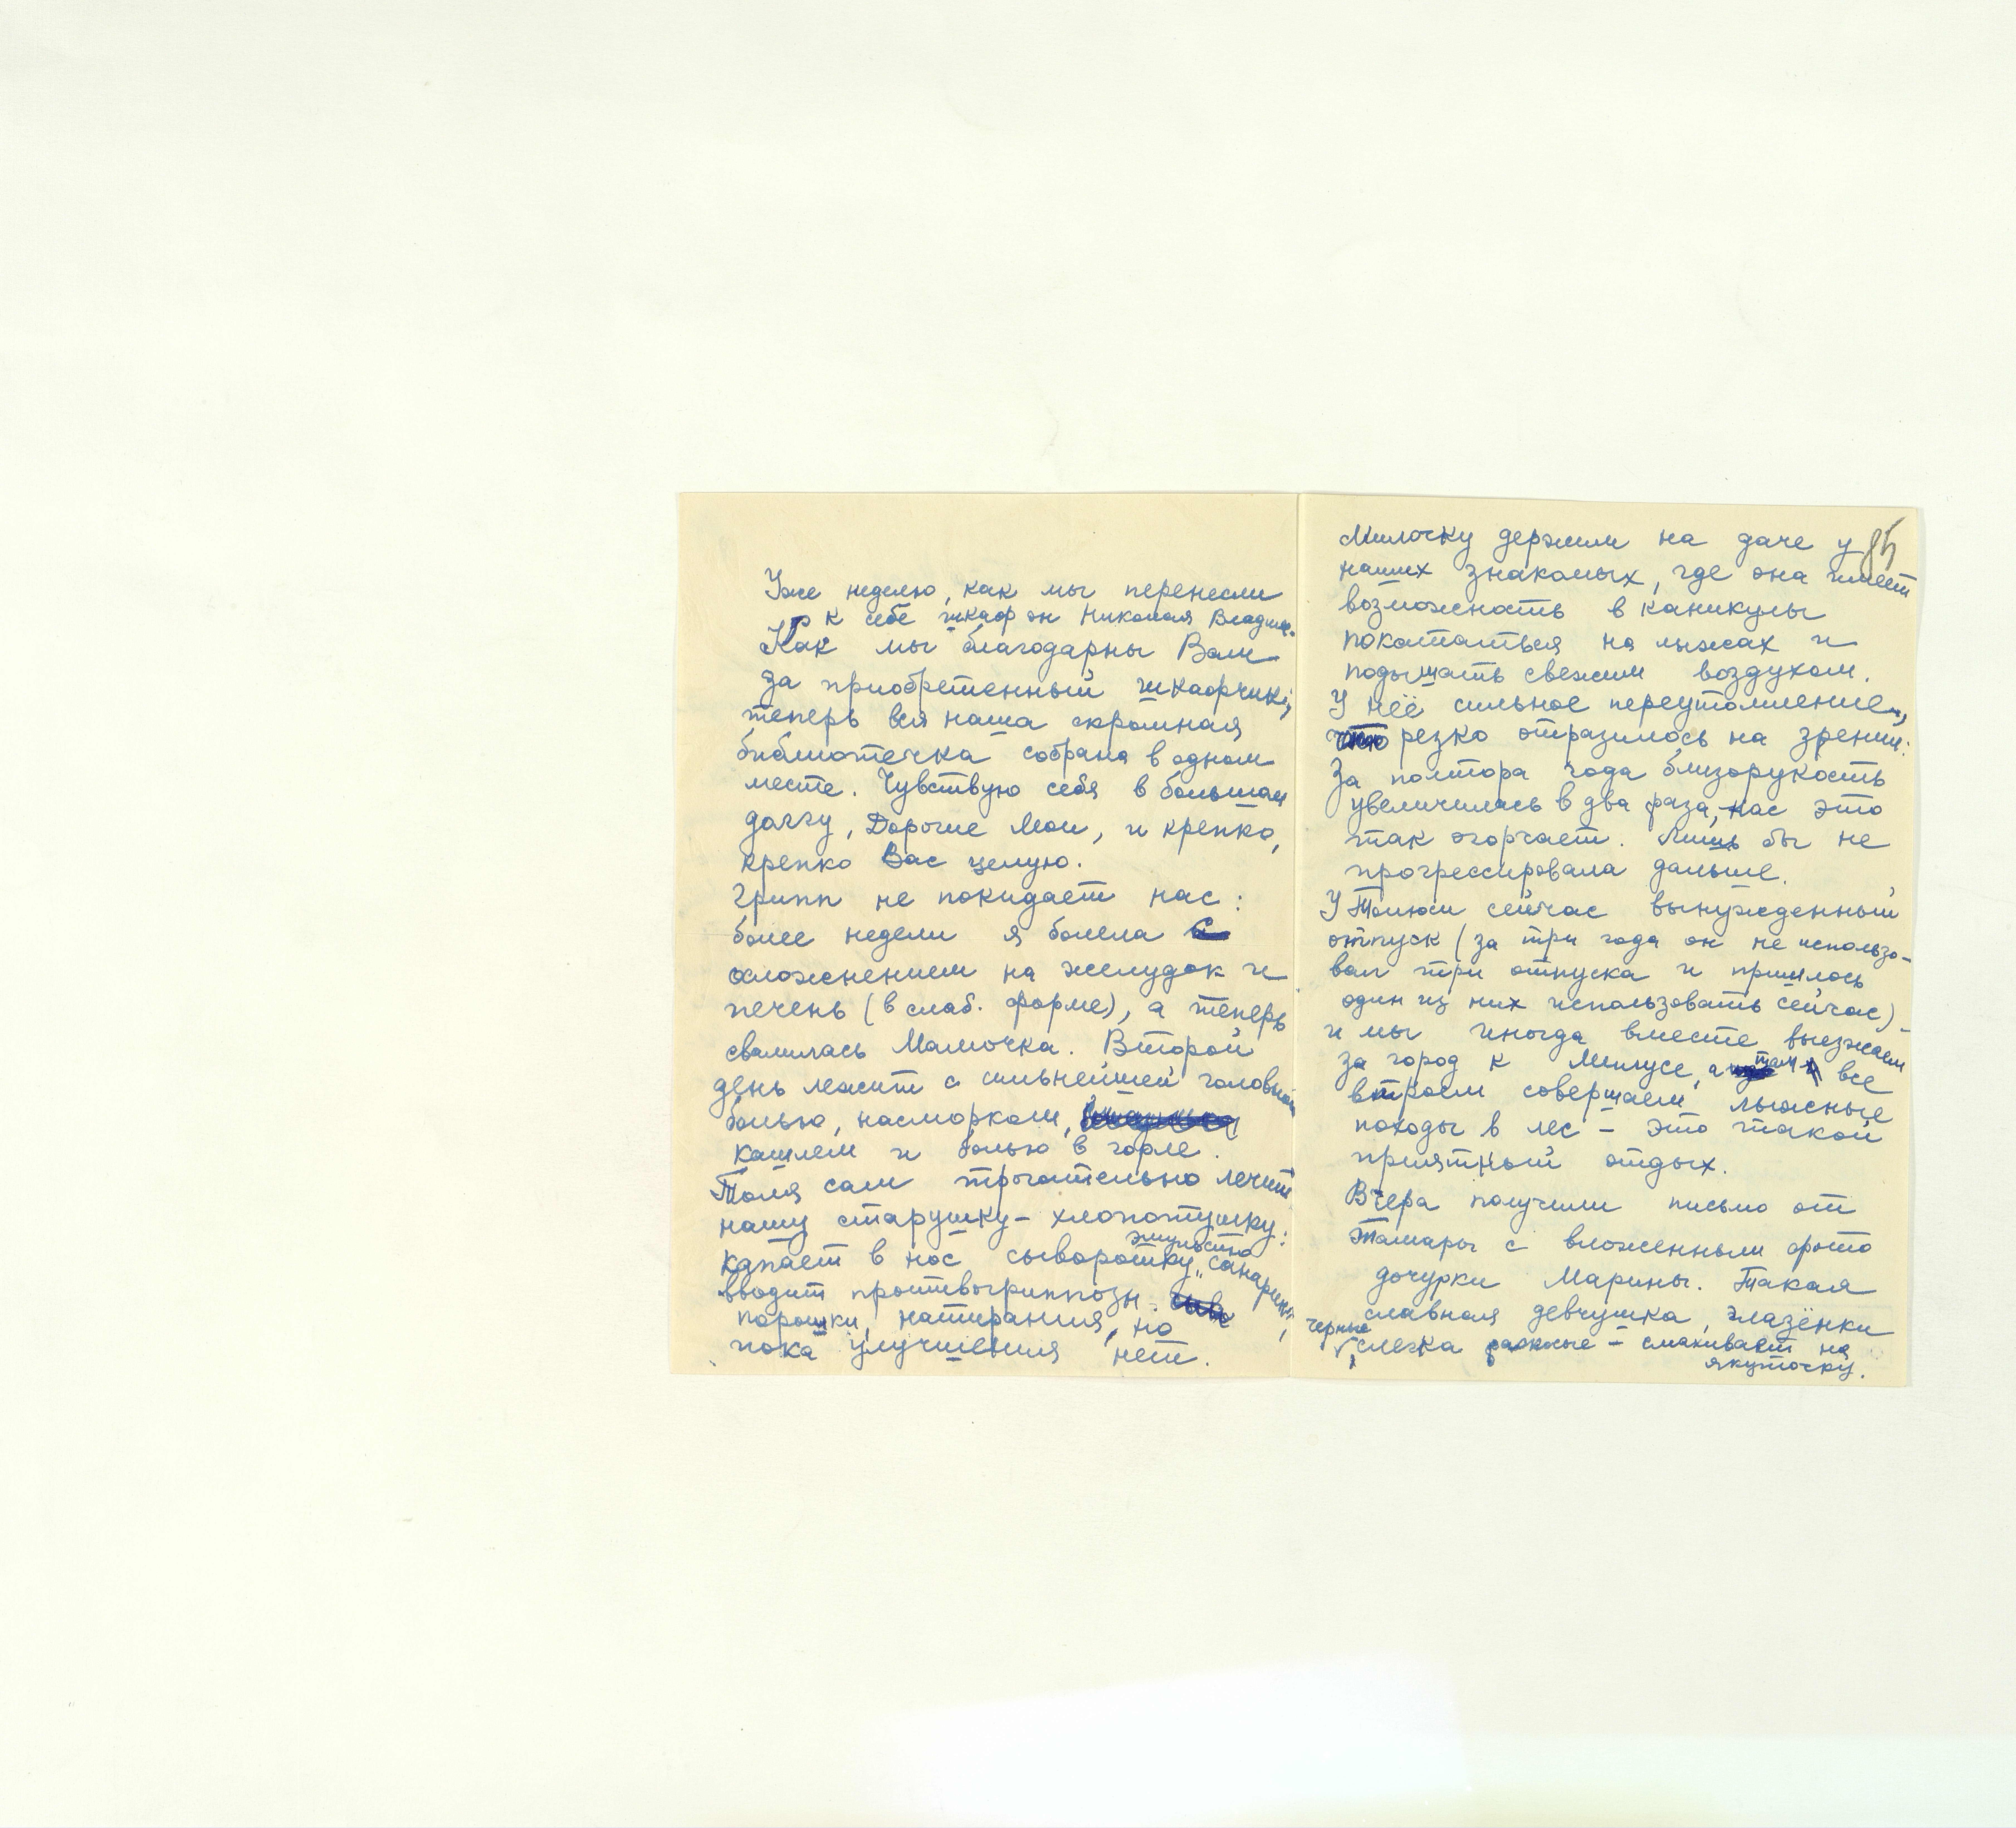 Уже неделю, как мы перенесли
к себе шкаф от Николая Владим.
Как мы благодарны Вам
за приобретенный шкафчик,
теперь вся наша скромная
библиотечка собрана в одном
месте. Чувствую себя в большом
долгу, Дорогие Мои, и крепко,
крепко Вас целую.
Грипп не покидает нас:
более недели я болела с
осложнением на желудок и
печень (в слаб. форме), а теперь
свалилась Мамочка. Второй
день лежит с сильнейшей головной
болью, насморком,
кашлем и болью в горле.
Толя сам трогательно лечит
нашу старушку-хлопотушку:
капает в нос сыворотку, эмульсию „Санарин",
вводит протвогриппозн.
порошки, натирания, но
пока улучшения нет.
85
Милочку держим на даче у
наших знакомых, где она имеет
возможность в каникулы
покататься на лыжах и
подышать свежим воздухом.
У неё сильное переутомление,
что резко отразилось на зрении:
За полтора года близорукость
увеличилась в два раза, нас это
так огорчает. Лишь бы не
прогрессировала дальше.
У Толюси сейчас вынужденный
отпуск (за три года он не использо-
вал три отпуска и пришлось
один из них использовать сейчас) -
и мы иногда вместе выезжаем
за город к Милусе, и там все
втроем совершаем лыжные
походы в лес – это такой
приятный отдых.
Вчера получили письмо от
Тамары с вложенными фото
дочурки Марины. Такая
славная девчушка, глазёнки
черные, слегка раскосые – смахивает на
якуточку.